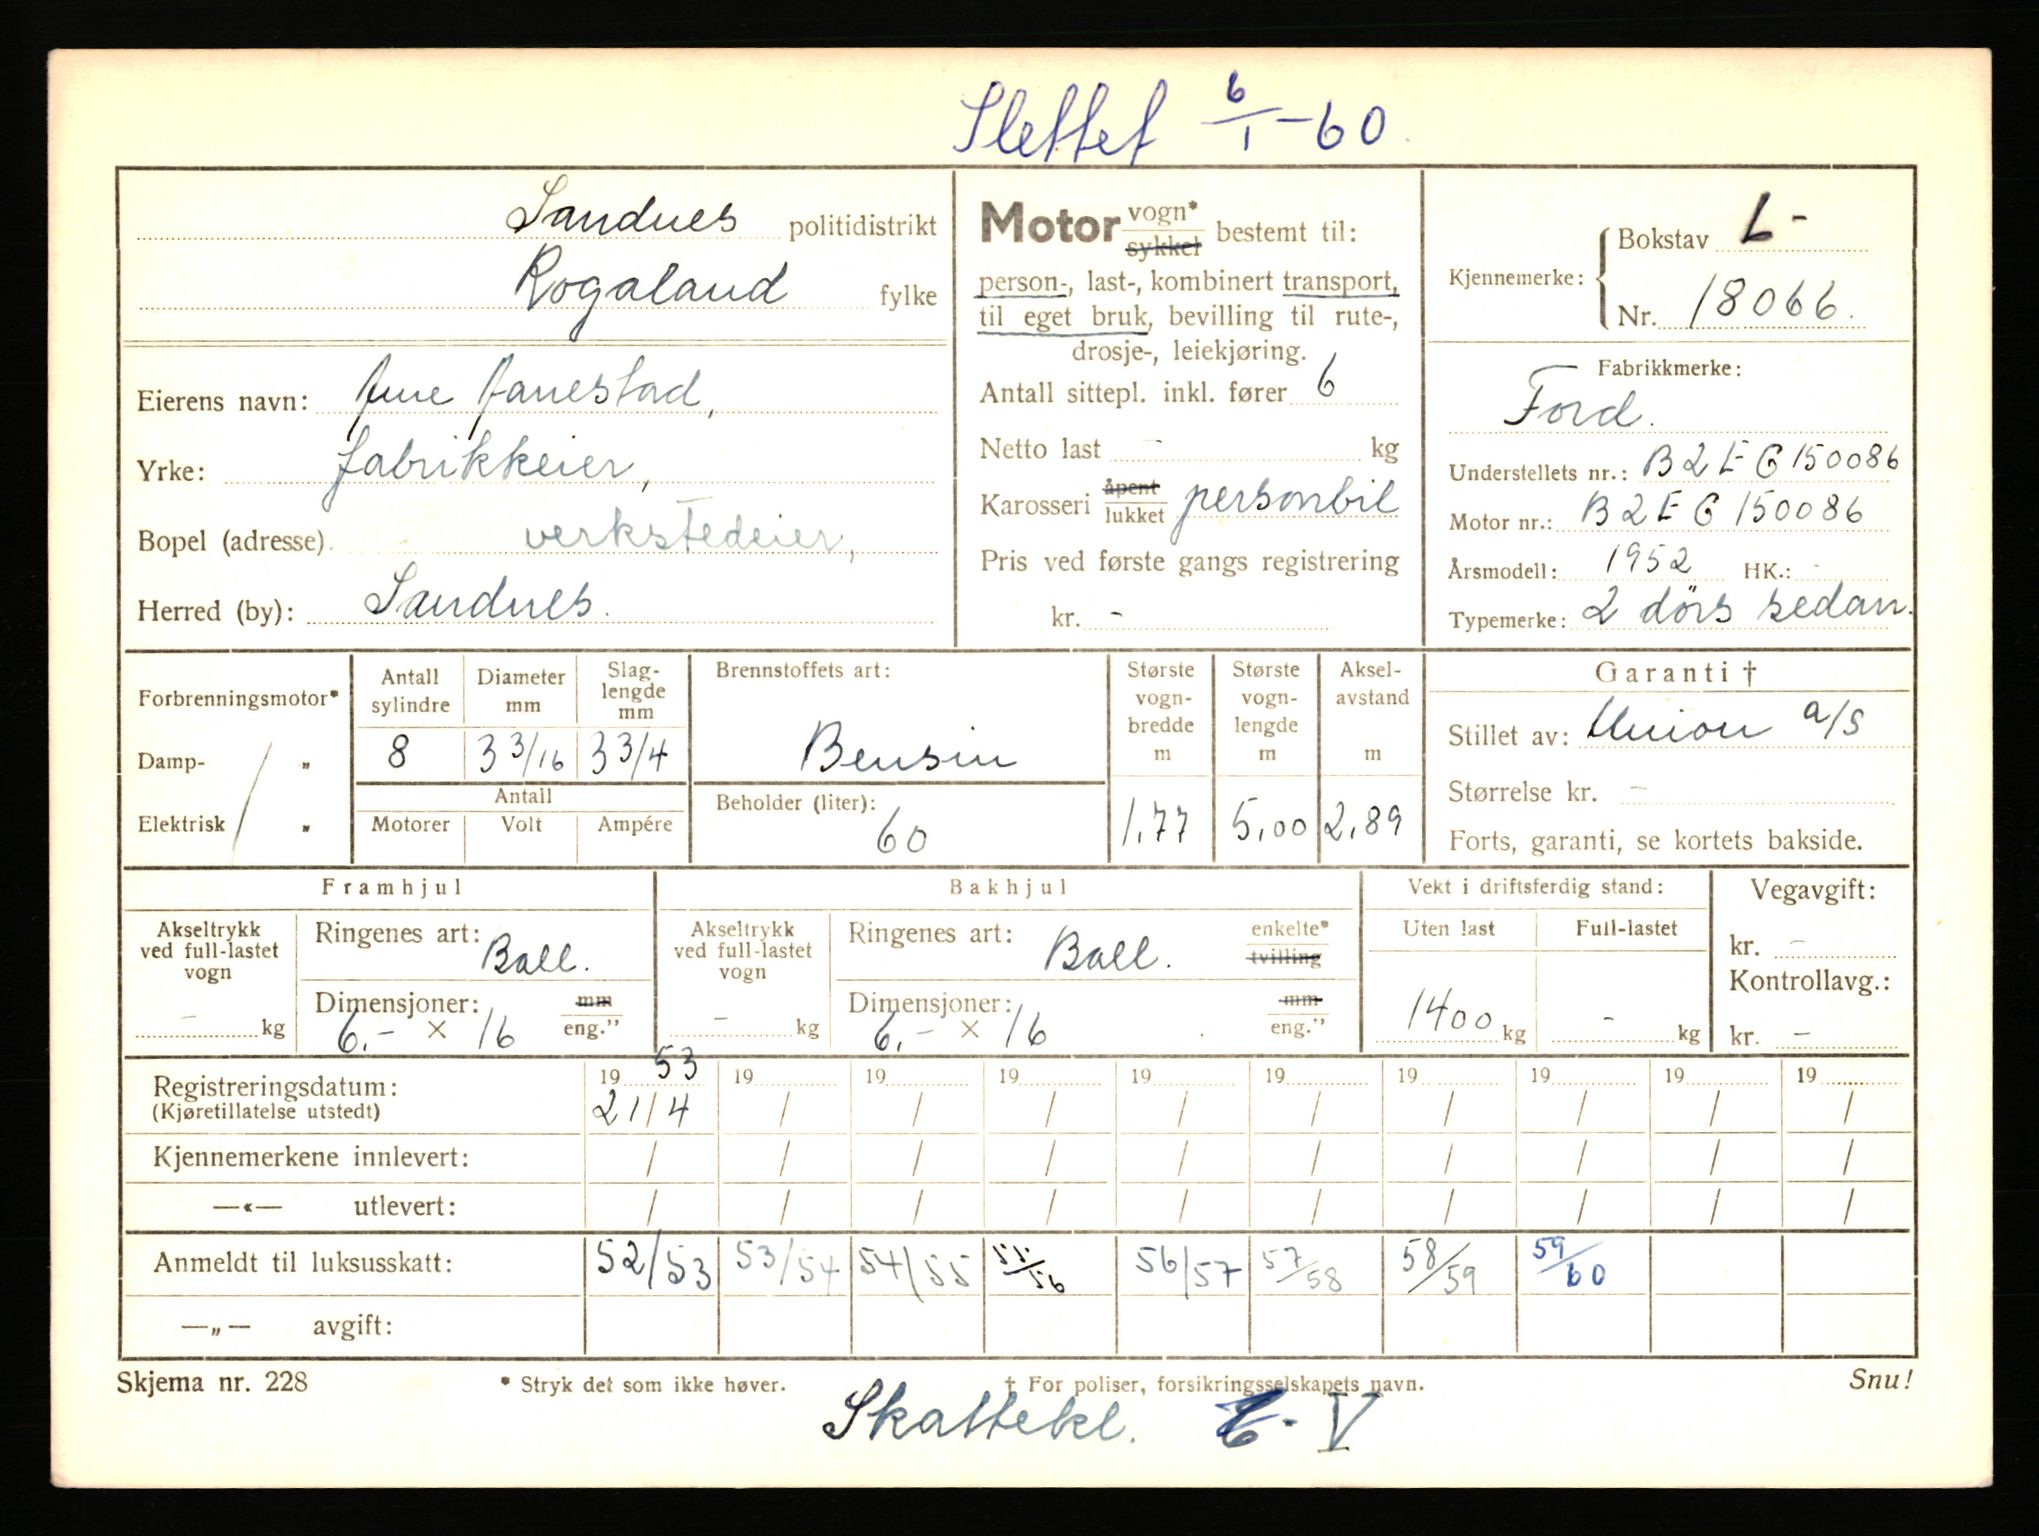 Slettet 6/1-60.
Sandnes politidistrikt
Rogaland fylke
Eierens navn: Janestad,
Yrke: fabrikkeier,
Bopel (adresse). verkstedeier,
Herred (by): Sandnes.
Motor vogn* sykkel bestemt til:
person-, last-, kombinert transport,
til eget bruk, bevilling til rute-,
drosje-, leiekjøring.
Antall sittepl. inkl. fører 6
Netto last - kg
Karosseri åpent lukket personbil
Pris ved første gangs registrering
kr. -
Kjennemerke: Bokstav L-
Nr. 18066.
Fabrikkmerke:
Ford.
Understellets nr.: B2EG150086
Motor nr.: B2EG150086
Årsmodell: 1952 HK.: -
Typemerke: 2 dörs sedan.
Forbrenningsmotor*
Damp- "
Elektrisk "
Antall sylindre 8
Diameter mm 3 3/16
Slaglengde mm 3 3/4
Antall
Motorer Volt Ampére
Brennstoffets art:
Bensin
Beholder (liter):
60
Største vognbredde m 1,77
Største vognlengde m 5,00
Akselavstand m 2,89
Garanti †
Stillet av: Union a/s
Størrelse kr. -
Forts, garanti, se kortets bakside.
Framhjul
Akseltrykk ved full-lastet vogn
- kg
Ringenes art: Ball.
Dimensjoner: mm eng."
6,- × 16
Bakhjul
Akseltrykk ved full-lastet vogn
- kg
Ringenes art: Ball. enkelte* tvilling
Dimensjoner: mm eng."
6,- × 16
Vekt i driftsferdig stand:
Uten last Full-lastet
1400 kg - kg
Vegavgift:
kr. -
Kontrollavg.:
kr. -
Registreringsdatum: 1953 19 19 19 19 19 19 19 19 19
(Kjøretillatelse utstedt) 21/4 / / / / / / / / /
Kjennemerkene innlevert: / / / / / / / / / /
—«— utlevert: / / / / / / / / / /
Anmeldt til luksusskatt: 52/53 53/54 54/55 55/56 56/57 57/58 58/59 59/60
—„— avgift:
Skjema nr. 228 * Stryk det som ikke høver. † For poliser, forsikringsselskapets navn. Snu!
Skattekl. V